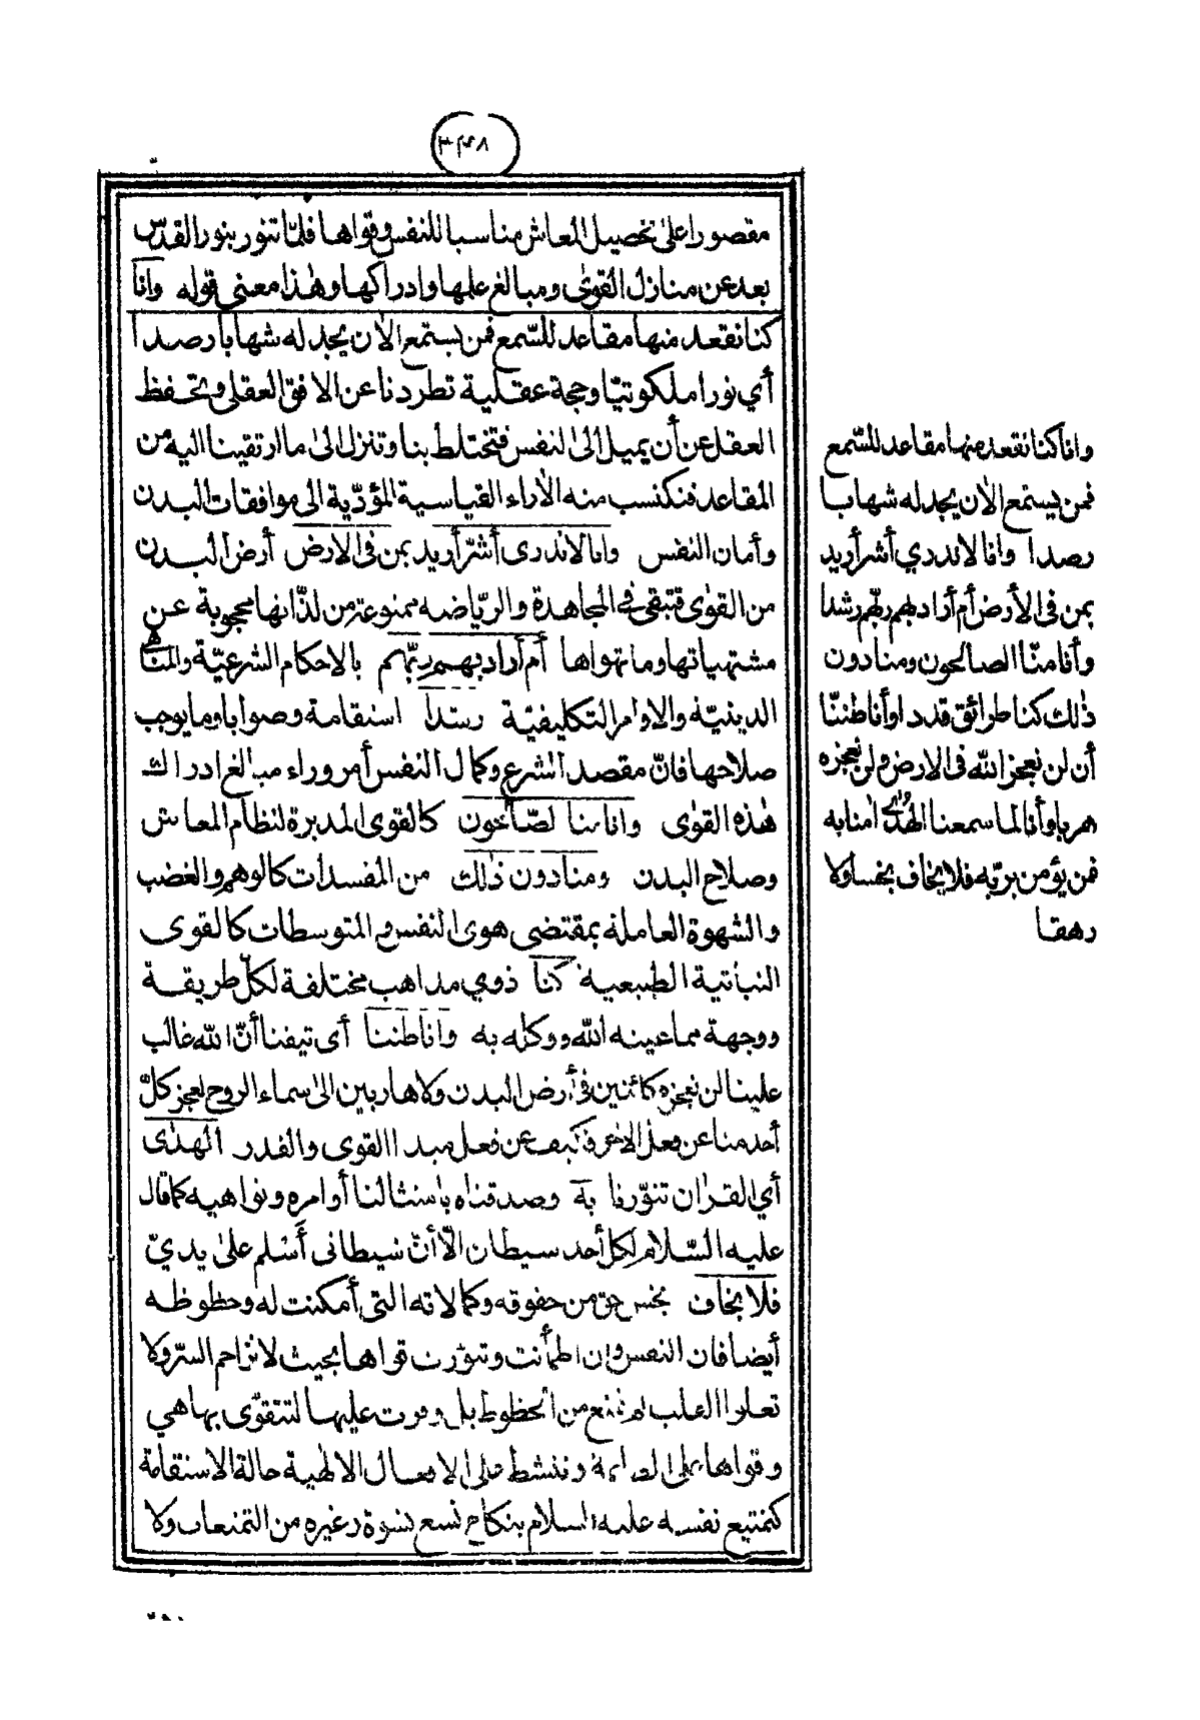 ٣٤٨
مقصورا على تحصيل المعاش مناسبا للنفس وقواها فلمّا تنور بنور القدّس
بعد عن منازل القوى ومبالغ علمها وادراكها وهٰذا معنى قوله وانّا
كنا نقعد منها مقاعد للسّمع فمن يستمع الاٰن يجد له شهابا رصدا
أي نورا ملكوتيّا وحجة عقلية تطردنا عن الافق العقلى وتحفظ
العقل عن أن يميل الى النفس فتختلط بنا وتنزل الىٰ ما ارتقينا اليه من
المقاعد فنكتسب منه الاٰراء القياسية المؤدّية الى موافقات البدن
وأمان النفس وانا لا ندرى أشرّ أريد بمن فى الارض أرض البدن
من القوٰى فتبقى فى المجاهدة والرّياضه ممنوعة من لذّاتها محجوبة عن
مشتهياتها وما تهواها أم أراد بهم ربّهم بالاحكام الشرعيّة والمناهي
الدينيّة والاوامر التكليفيّة رشدا استقامة وصوابا وما يوجب
صلاحها فانّ مقصد الشرع وكمال النفس أمر وراء مبالغ ادراك
هٰذه القوٰى وانا منا الصّالحون كالقوى المدبرة لنظام المعاش
وصلاح البدن ومنا دون ذٰلك من المفسدات كالوهم والغضب
والشهوة العاملة بمقتضى هوى النفس والمتوسطات كالقوى
النباتية الطبيعية كنا ذوي مذاهب مختلفة لكلّ طريقة
ووجهة مما عينه اللّه ووكله به وانا ظننا أى تيقنا أنّ اللّه غالب
علينا لن نعجزه كائنين فى أرض البدن ولا هاربين الى سماء الروح لعجز كلّ
أحد منا عن فعل الاٰخر فكيف عن فعل مبدا القوى والقدر الهدٰى
أي القراٰن تنوّرنا به وصدقناه بامتثالنا أوامره ونواهيه كما قال
عليه السّلام لكل أحد شيطان الّا أنّ شيطانى أسلم علىٰ يديّ
فلا يخاف بخس حق من حقوقه وكمالاته التى أمكنت له وحظوظه
أيضا فان النفس وإن اطمأنت وتنوّرت قواها بحيث لا تزاحم السرّ ولا
تعلوا القلب لم تمنع من الحظوظ بل وفرت عليها لتتقوّى بها هي
وقواها على الطاعة وتنشط على الافعال الالٰهية حالة الاستقامة
كتمتيع نفسه عليه السلام بنكاح تسع نسوة وغيره من التمتعات ولا
وانا كنا نقعد منها مقاعد للسّمع
فمن يستمع الاٰن يجد له شهابا
رصدا وانا لا ندري أشر أريد
بمن فى الأرض أم أراد بهم ربّهم رشدا
وأنا منّا الصالحون ومنا دون
ذٰلك كنا طرائق قددا وأنا ظننّا
أن لن نعجز اللّه فى الارض ولن نعجزه
هربا وأنا لما سمعنا الهُدٰى اٰمنا به
فمن يؤمن بربّه فلا يخاف بخسا ولا
رهقا